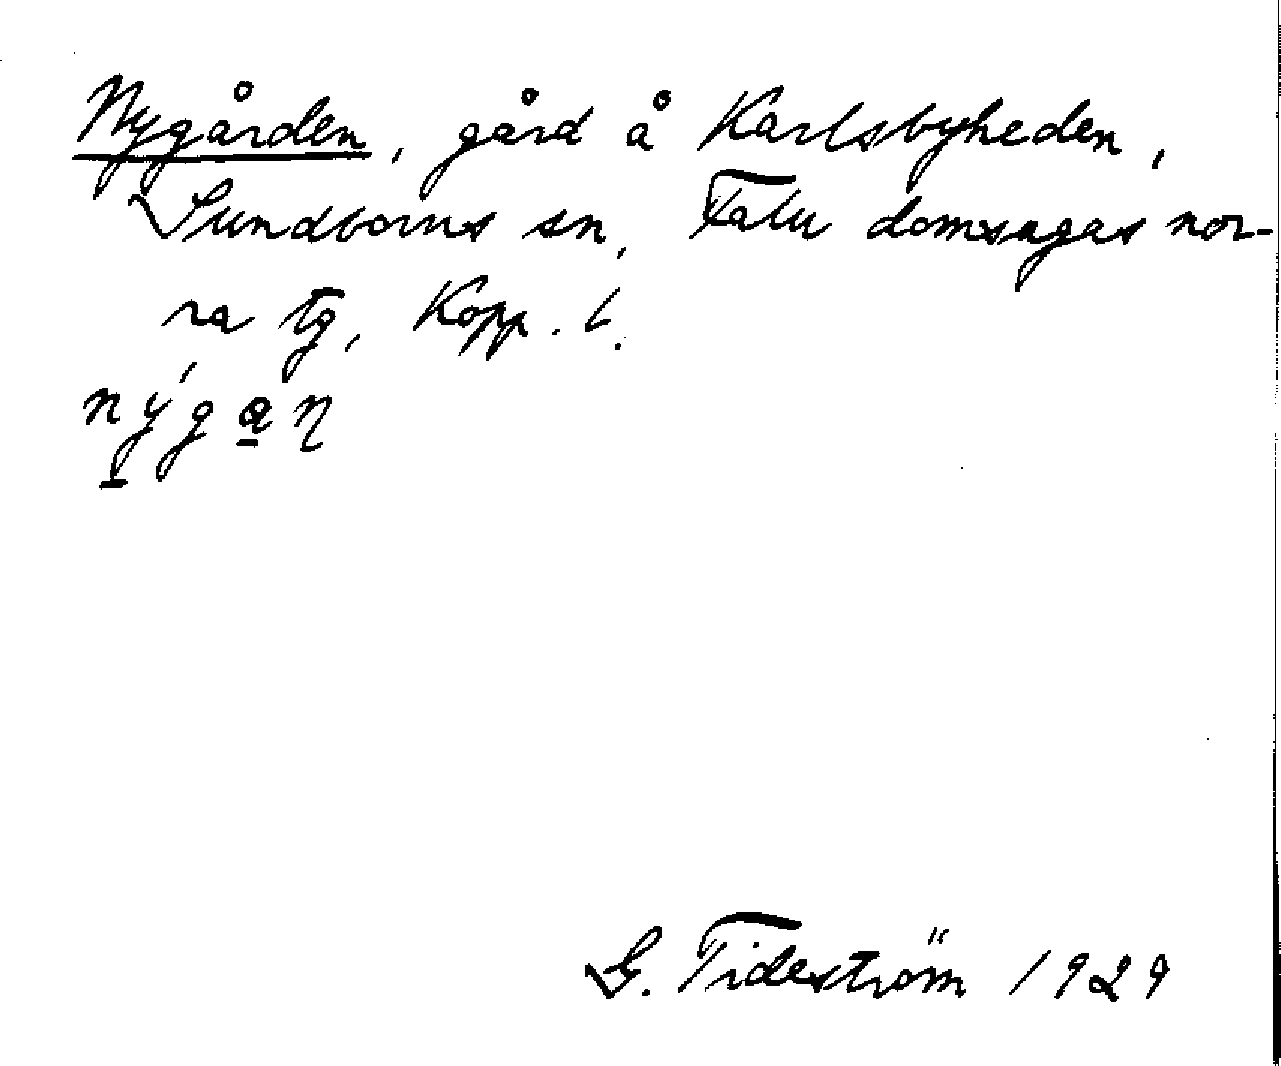 Nygården, gård å Karlsbyheden,
Sundborns sn, Falu domsagas nor-
ra tg, Kopp. l.
nýgan
G. Tideström 1929